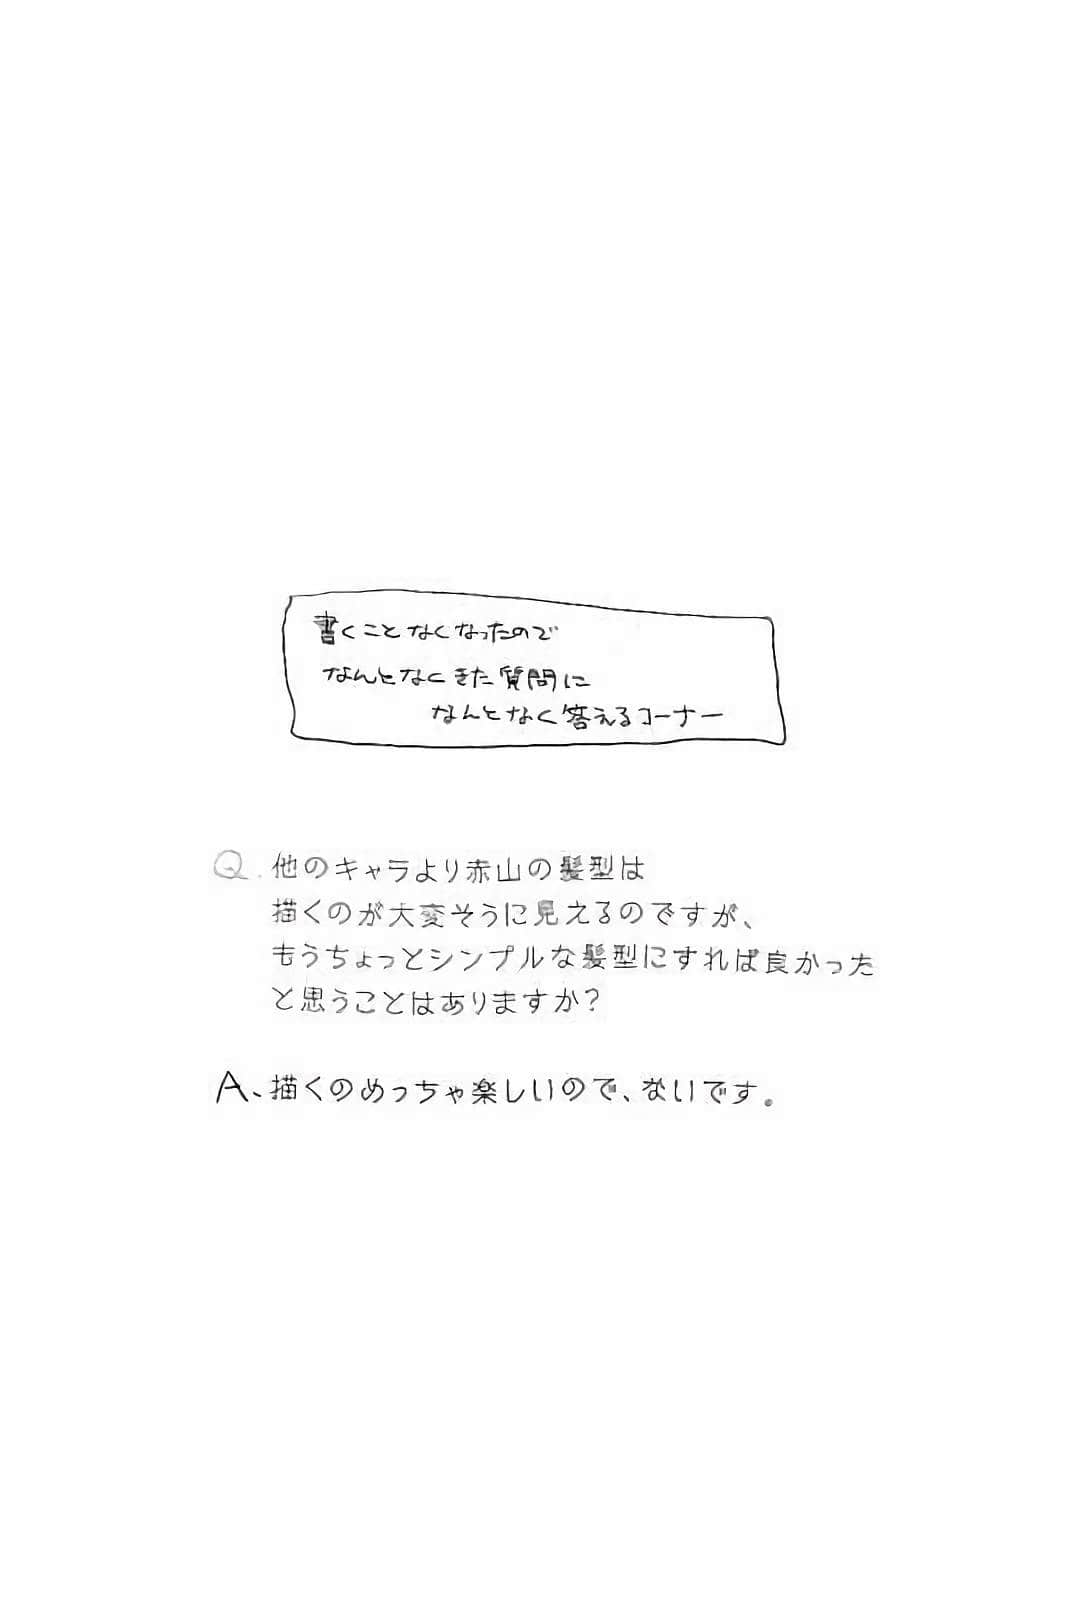 書くことなくなったので
なんとなくきた質問に
なんとなく答えるコーナー
Q.他のキャラより赤山の髪型は
描くのが大変そうに見えるのですが、
もうちょっとシンプルな髪型にすれば良かった
と思うことはありますか?
A、描くのめっちゃ楽しいので、ないです。